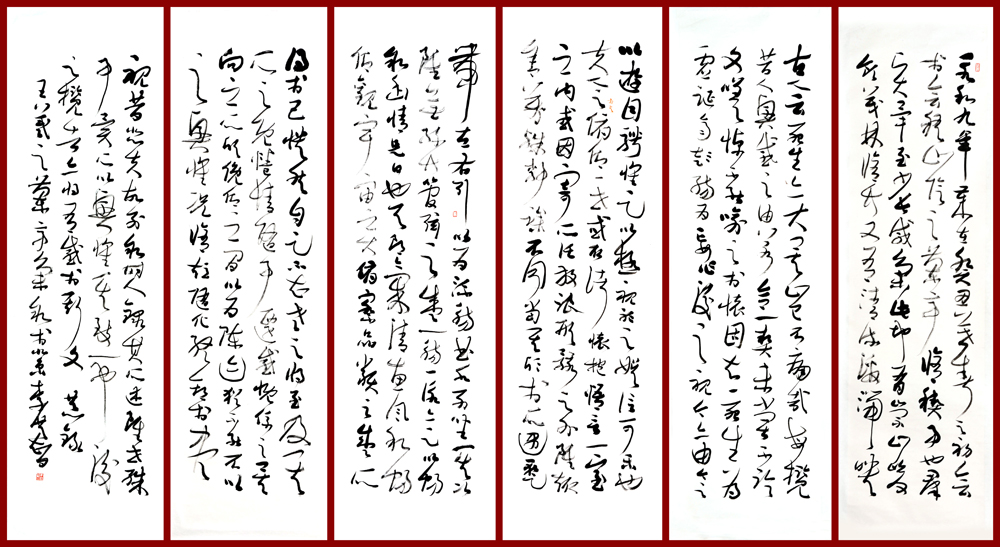 永和九年歲在癸丑暮春之初會
於會稽山陰之蘭亭脩稧事也群
賢畢至少長咸集此地有崇山峻
領茂林脩竹又有清流激湍映
古人云死生亦大矣豈不痛哉每攬
昔人興感之由若合一契未嘗不臨
文嗟悼不能喻之於懷固知一死生為
虛誕齊彭殤為妄作後之視今亦由今之
以遊目騁懷足以極視聽之娛信可樂也
夫人之相與俯仰一世或取諸懷抱悟言一室
之內或因寄所託放浪形骸之外雖趣
舍萬殊靜躁不同當其欣於所遇暫
帶左右引以為流觴曲水列坐其次
雖無絲竹管弦之盛一觴一詠亦足以暢
敘幽情是日也天朗氣清惠風和暢
仰觀宇宙之大俯察品類之盛所
得於己快然自足不知老之將至及其
所之既惓情隨事遷感慨係之矣
向之所欣俛仰之間以為陳迹猶不能不以
之興懷況脩短隨化終期於盡
視昔悲夫故列敘時人錄其所述雖世殊
事異所以興懷其致一也後
之攬者亦將有感於斯文
王羲之蘭亭集敘